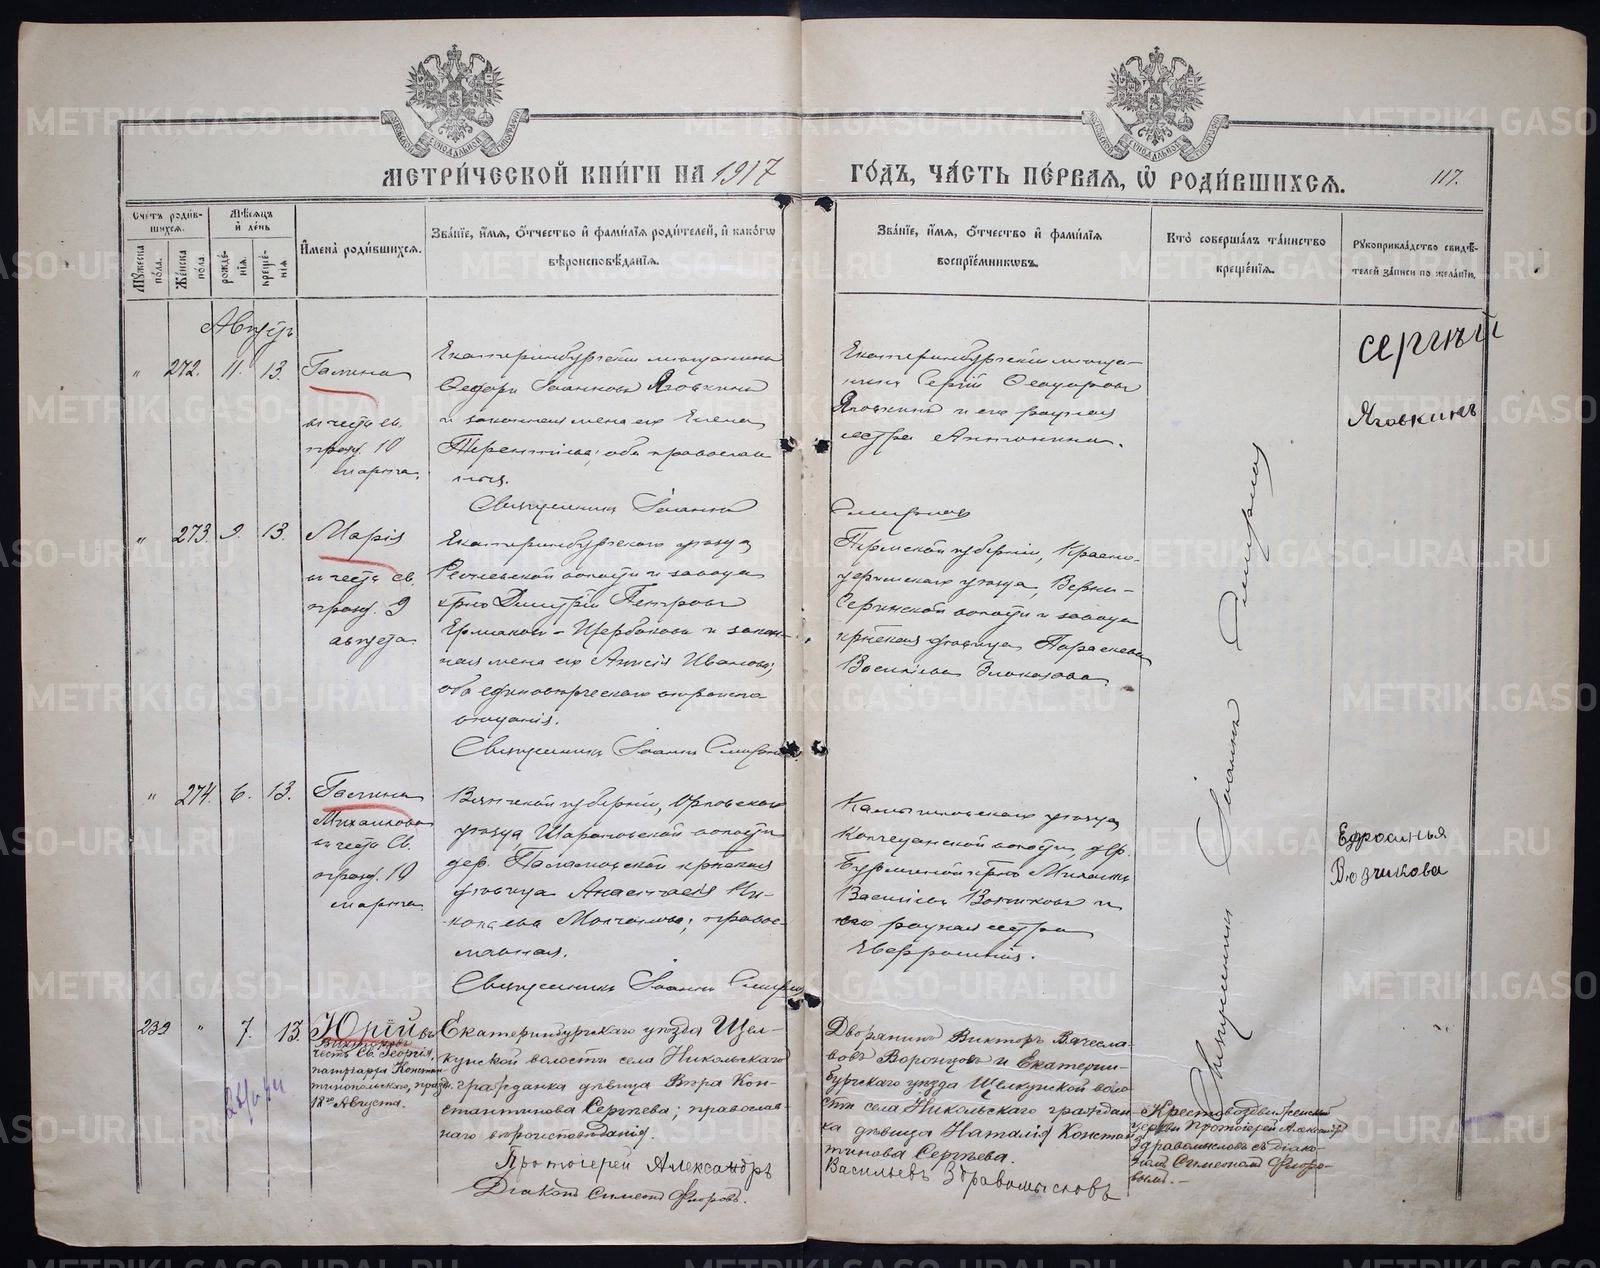 МЕТРИ́ЧЕСКОЙ КНИ́ГИ НА 1917
ГО́ДЪ, ЧА́СТЬ ПЕ́РВАЯ, Ѡ РОДИ́ВШИХСЯ.
117.
Сче́тъ роди́в-
шихся.
Му́жеска по́ла.
Же́нска по́ла.
Мѣ́сяцъ и де́нь
рожде́-
нія.
креще́-
нія.
Имена̀ роди́вшихся.
Зва́ніе, и́мя, о́тчество и фами́лія роди́телей, и како́гѡ
вѣроисповѣ́данія.
Зва́ніе, и́мя, о́тчество и фами́лія
воспріе́мниковъ.
Кто̀ соверша́лъ та́инство
креще́нія.
Рукоприкла́дство свидѣ́-
телей за́писи по жела́нію.
Августъ
" 272. 11. 13.
Галина
въ честь св.
празд. 10
марта.
Екатеринбургскій мѣщанинъ
Ѳеодоръ Іоанновъ Яговкинъ
и законная жена его Елена
Терентьева; оба православ
ные.
Священникъ Іоаннъ
Смирновъ
Екатеринбургскій мѣща-
нинъ Сергій Ѳеодоровъ
Яговкинъ и его родная
сестра Антонина.
Сергѣй
Яговкинъ
" 273. 9. 13.
Марія
въ честь св.
празд. 9
августа.
Екатеринбургскаго уѣзда
волости и завода
кр-нъ Дмитрій Петровъ
Ермаковъ-Щербаковъ и закон-
ная жена его Анисія Иванова;
оба единовѣрческаго
Священникъ Іоаннъ Смирновъ
Пермской губерніи, Красно-
уфимскаго уѣзда, Верхне-
Сергинской волости и завода
кр-нская дѣвица Параскева
Васильева Злоказова.
" 274. 6. 13.
Галина
Михайлова
въ честь Св.
празд. 10
марта
Вятской губерніи, Орловскаго
уѣзда, волости
дер. кр-нская
дѣвица Анастасія Ни-
колаева Молчанова; правос-
лавная.
Священникъ Іоаннъ Смирновъ
Камышловскаго уѣзда
волости, дер.
кр-нъ Михаилъ
Васильевъ и
его родная сестра
Евфросинія.
Ефросинья
Возчикова
Священникъ Іоаннъ Смирновъ
239 " 7. 13.
Юрій въ
Викторовъ
честь Св. Георгія,
патріарха Констан
тинопольскаго, празд.
18го Августа.
Екатеринбургскаго уѣзда Щел-
кунской волости села Никольскаго
гражданка дѣвица Вѣра Кон-
стантинова Сергѣева; православ-
наго вѣроисповѣданія.
Протоіерей Александръ
Діаконъ Симеонъ Флоровъ.
Дворянинъ Викторъ Вячесла-
вовъ Воронцовъ и Екатерин-
бургскаго уѣзда Щелкунской воло-
сти села Никольскаго граждан-
ка дѣвица Наталія Констан
тинова Сергѣева.
Васильевъ Здравомысловъ
Крестовоздвиженской
церкви Протоіерей Александръ
Здравомысловъ съ діако-
номъ Симеономъ Флоро-
вымъ.-
METRIKI.GASO-URAL.RU